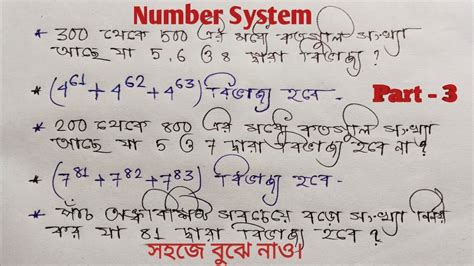 Number System
* 300 থেকে 500 এর মধ্যে কতগুলি সংখ্যা
আছে যা 5, 6 ও 8 দ্বারা বিভাজ্য ?
* (4^61 + 4^62 + 4^63) বিভাজ্য হবে -
Part - 3
* 200 থেকে 800 এর মধ্যে কতগুলি সংখ্যা
আছে যা 5 ও 7 দ্বারা বিভাজ্য হবে না ?
* (7^81 + 7^82 + 7^83) বিভাজ্য হবে -
* পাঁচ অঙ্কবিশিষ্ট সবচেয়ে বড়ো সংখ্যা নির্ণয়
কর যা 81 দ্বারা বিভাজ্য হবে ?
সহজে বুঝে নাও।